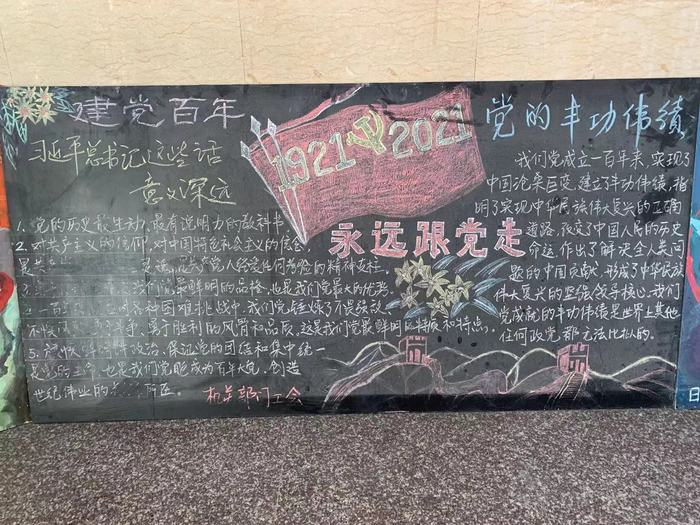 建党百年
习近平总书记这些话
意义深远
1. 党的历史最生动、最有说明力的教科书
2. 对共产主义的信仰，对中国特色社会主义的信念
是共产 是共产党人经受任何考验的精神支柱
我们党最鲜明的品格，也是我们党最大的优势
4. 一百年 各种困难挑战中，我们党锤炼了不畏强敌、
不惧风险 斗争、勇于胜利的风骨和品质，这是我们党最鲜明的特质和特点。
5. 旗帜鲜明讲政治、保证党的团结和集中统一
是党的生命，也是我们党能成为百年大党、创造
世纪伟业的 所在。
机关部门工会
1921 2021
永远跟党走
党的丰功伟绩
我们党成立一百年来，实现了
中国沧桑巨变，建立了丰功伟绩，指
明了实现中华民族伟大复兴的正确
道路，改变了中国人民的历史
命运，作出了解决全人类问
题的中国贡献，形成了中华民族
伟大复兴的坚强领导核心。我们
党成就的丰功伟绩是世界上其他
任何政党都无法比拟的。
日